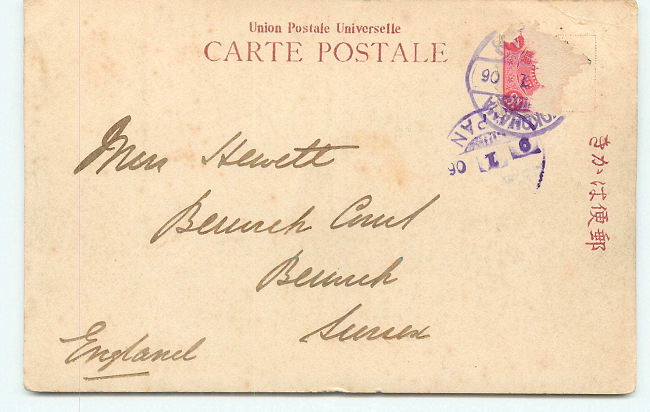 Union Postale Universelle
CARTE POSTALE
YOKOHAMA
06
郵便はかき
Miss Hewett
Berwick Court
Berwick
Sussex
England